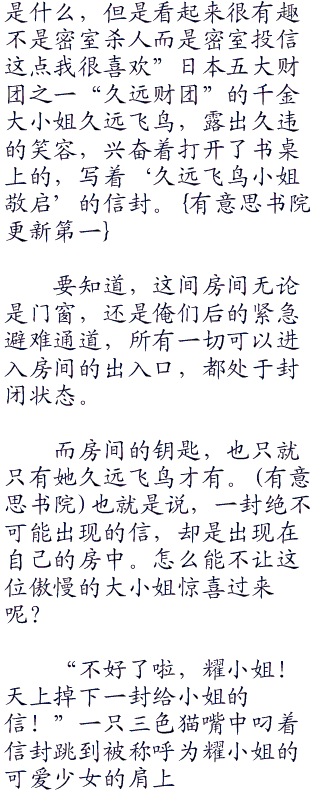 是什么，但是看起来很有趣
不是密室杀人而是密室投信
这点我很喜欢”日本五大财
团之一“久远财团”的千金
大小姐久远飞鸟，露出久违
的笑容，兴奋着打开了书桌
上的，写着‘久远飞鸟小姐
敬启’的信封。{有意思书院
更新第一}
要知道，这间房间无论
是门窗，还是俺们后的紧急
避难通道，所有一切可以进
入房间的出入口，都处于封
闭状态。
而房间的钥匙，也只就
只有她久远飞鸟才有。(有意
思书院)也就是说，一封绝不
可能出现的信，却是出现在
自己的房中。怎么能不让这
位傲慢的大小姐惊喜过来
呢？
“不好了啦，耀小姐！
天上掉下一封给小姐的
信！”一只三色猫嘴中叼着
信封跳到被称呼为耀小姐的
可爱少女的肩上